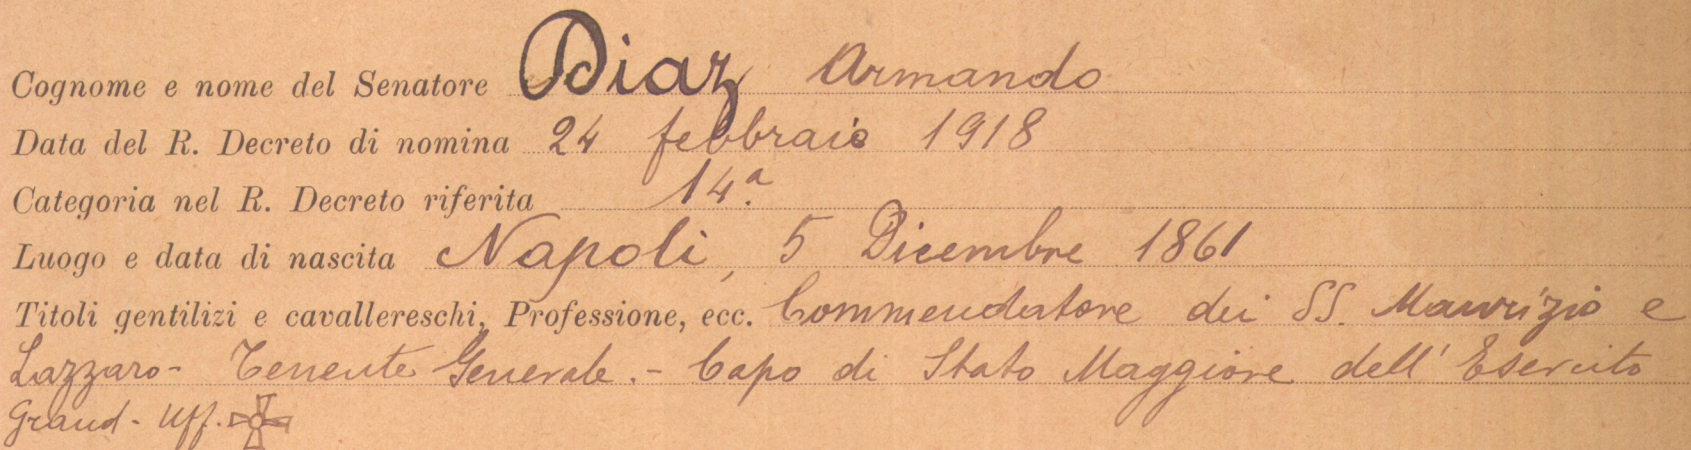 Cognome e nome del Senatore Diaz Armando
Data del R. Decreto di nomina 24 febbraio 1918
Categoria nel R. Decreto riferita 14.a
Luogo e data di nascita Napoli, 5 Dicembre 1861
Titoli gentilizi e cavallereschi, Professione, ecc. Commendatore dei SS. Maurizio e
Lazzaro - Tenente Generale. - Capo di Stato Maggiore dell' Esercito
Grand - Uff.